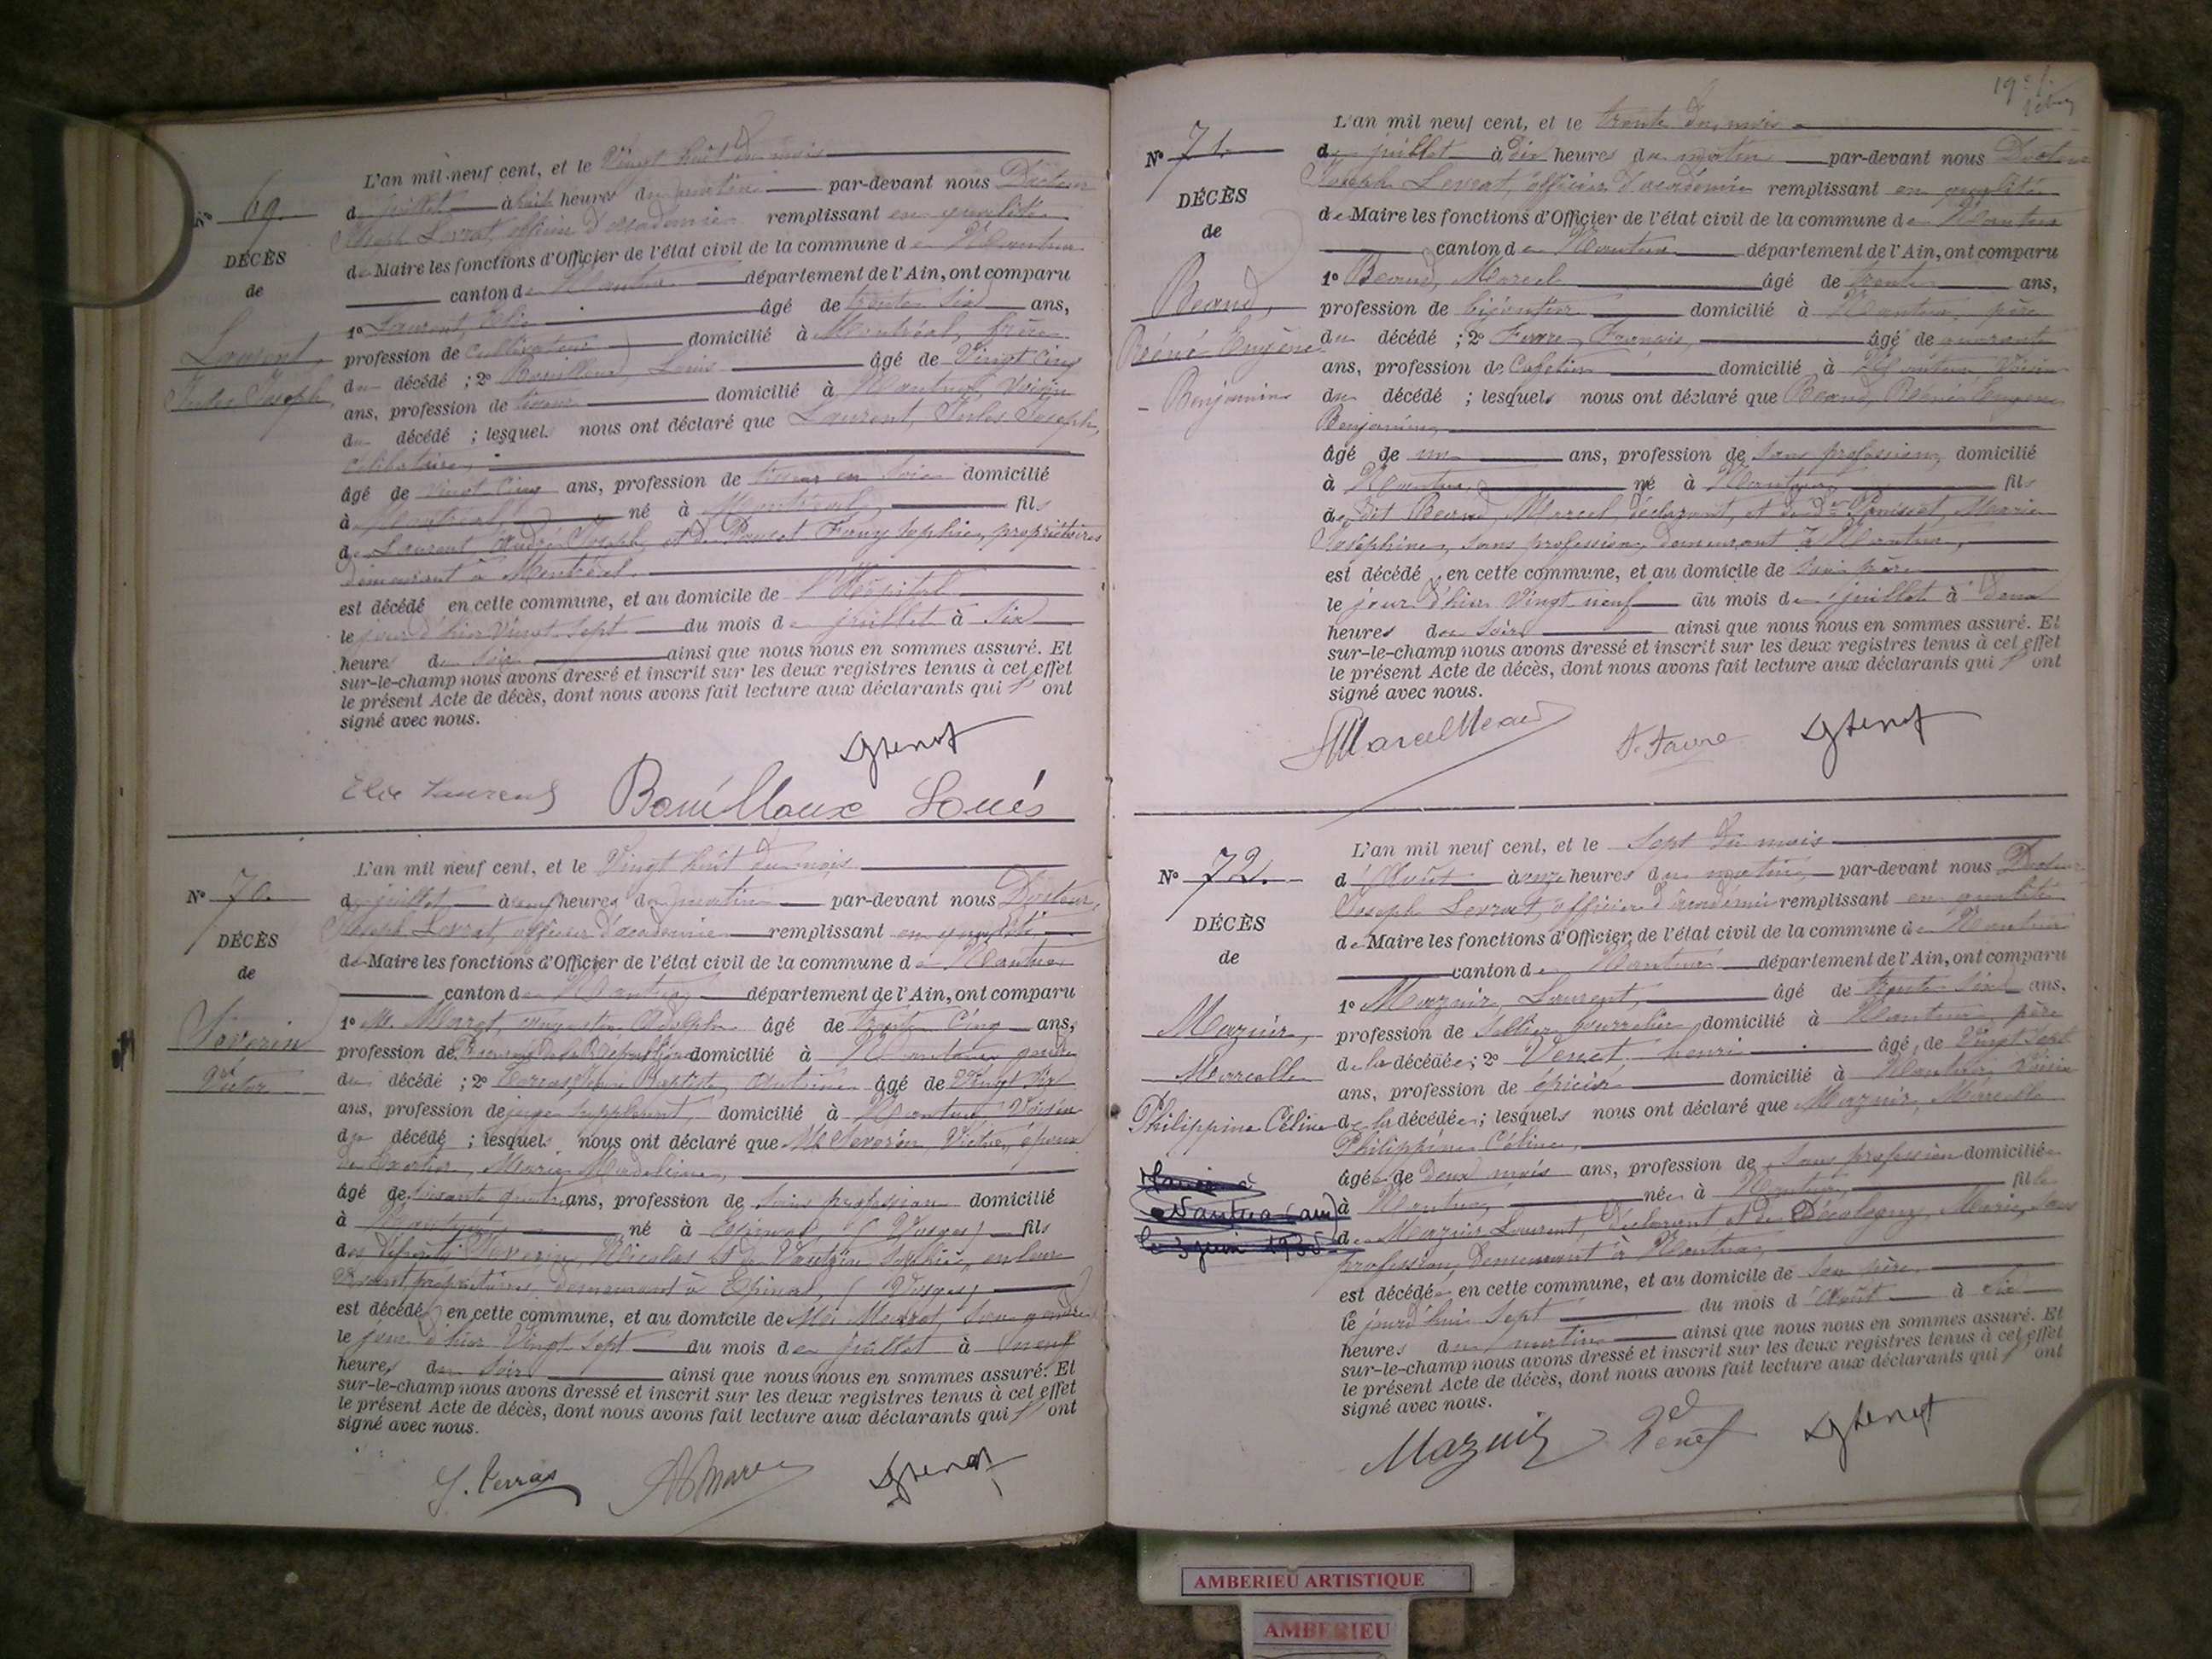 Nº 69.
DÉCÈS
de
Laurent,
Jules Joseph,
L'an mil neuf cent, et le Vingt huit du mois
de juillet à huit heures du matin par-devant nous Docteur
Joseph Levrat, officier d'académie remplissant en qualité
de Maire les fonctions d'Officier de l'état civil de la commune de Nantua
canton de Nantua département de l'Ain, ont comparu
1º Laurent, Elie âgé de trente six ans,
profession de cultivateur domicilié à Montréal, frère
du décédé ; 2º Bouilloux, Louis âgé de Vingt cinq
ans, profession de domicilié à Nantua, voisin
du décédé ; lesquels nous ont déclaré que Laurent, Jules Joseph,
célibataire,
âgé de vingt cinq ans, profession de tisseur en soie domicilié
à Montréal, né à Montréal, fils
de Laurent André Joseph, et de Fany Sophie, propriétaires
demeurant à Montréal.
est décédé en cette commune, et au domicile de l'Hôpital
le jour d'hier Vingt sept du mois de juillet à six
heures du soir ainsi que nous nous en sommes assuré. Et
sur-le-champ nous avons dressé et inscrit sur les deux registres tenus à cet effet
le présent Acte de décès, dont nous avons fait lecture aux déclarants qui l'ont
signé avec nous.
Elie Laurent Bouilloux Loués
Nº 70.
DÉCÈS
de
Séverin
Victor
L'an mil neuf cent, et le Vingt huit du mois
de juillet à neuf heures du matin par-devant nous Docteur
Joseph Levrat, officier d'académie remplissant en qualité
de Maire les fonctions d'Officier de l'état civil de la commune de Nantua
canton de Nantua département de l'Ain, ont comparu
1º M. Adolphe âgé de trente cinq ans,
profession de Procureur de la République domicilié à Nantua gendre
du décédé ; 2º Jean Baptiste, Antoine âgé de Vingt
ans, profession de juge suppléant, domicilié à Nantua Voisin
du décédé ; lesquels nous ont déclaré que M. Séverin, Victor, époux
de Marie Madeleine,
âgé de soixante quatre ans, profession de sans profession domicilié
à Nantua né à Epinal (Vosges) fils
des défunts Séverin, Nicolas et de Sophie, en leur
vivant propriétaires demeurant à Epinal, (Vosges)
est décédé en cette commune, et au domicile de son gendre
le jour d'hier Vingt sept du mois de juillet à neuf
heures du soir ainsi que nous nous en sommes assuré. Et
sur-le-champ nous avons dressé et inscrit sur les deux registres tenus à cet effet
le présent Acte de décès, dont nous avons fait lecture aux déclarants qui l'ont
signé avec nous.
Nº 71.
DÉCÈS
de
Beaud,
Réné Eugène
Benjamin
L'an mil neuf cent, et le trente du mois
de juillet à dix heures du matin par-devant nous Docteur
Joseph Levrat, officier d'académie remplissant en qualité
de Maire les fonctions d'Officier de l'état civil de la commune de Nantua
canton de Nantua département de l'Ain, ont comparu
1º Beaud, Marcel âgé de trente ans,
profession de bijoutier domicilié à Nantua, père
du décédé ; 2º Favre, François, âgé de quarante
ans, profession de Cafetier domicilié à Nantua Voisin
du décédé ; lesquels nous ont déclaré que Beaud, Réné Eugène
Benjamin,
âgé de un ans, profession de sans profession, domicilié
à Nantua, né à Nantua, fils
du dit Beaud, Marcel, déclarant, et de Marie
Joséphine, sans profession, demeurant à Nantua,
est décédé en cette commune, et au domicile de son père
le jour d'hier Vingt neuf du mois de juillet à deux
heures du soir ainsi que nous nous en sommes assuré. Et
sur-le-champ nous avons dressé et inscrit sur les deux registres tenus à cet effet
le présent Acte de décès, dont nous avons fait lecture aux déclarants qui l'ont
signé avec nous.
F. Favre
Nº 72.
DÉCÈS
de
Mazuir,
Marcelle
Philippine Céline
Nantua (ain)
le 3 juin 1935
L'an mil neuf cent, et le Sept du mois
d'Août à onze heures du matin par-devant nous Docteur
Joseph Levrat, officier d'académie remplissant en qualité
de Maire les fonctions d'Officier de l'état civil de la commune de Nantua
canton de Nantua département de l'Ain, ont comparu
1º Mazuir, Laurent, âgé de trente six ans,
profession de Sellier bourrelier domicilié à Nantua, père
de la décédée ; 2º Venet henri âgé de Vingt sept
ans, profession de épicier domicilié à Nantua Voisin
de la décédée ; lesquels nous ont déclaré que Mazuir, Marcelle
Philippine Céline,
âgée de Deux mois ans, profession de sans profession domiciliée
à Nantua, née à Nantua, fille
de Mazuir Laurent, déclarant et de Marie, sans
profession, demeurant à Nantua,
est décédée en cette commune, et au domicile de son père,
le jourd'hui sept du mois d'Août à six
heures du matin ainsi que nous nous en sommes assuré. Et
sur-le-champ nous avons dressé et inscrit sur les deux registres tenus à cet effet
le présent Acte de décès, dont nous avons fait lecture aux déclarants qui l'ont
signé avec nous.
Mazuir Venet
AMBERIEU ARTISTIQUE
AMBERIEU